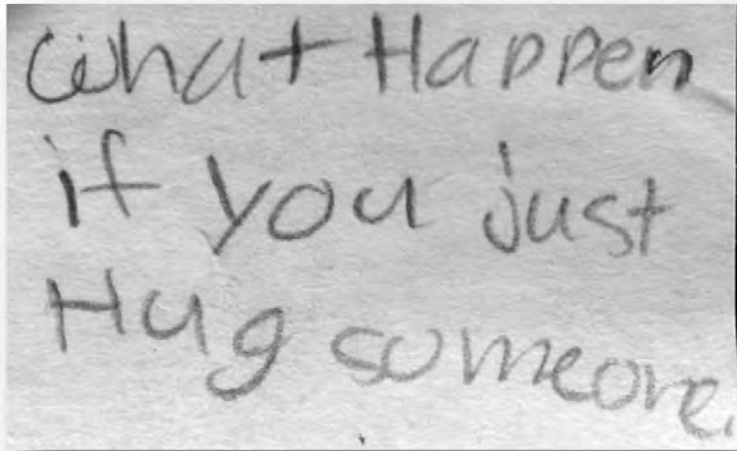 what Happen
if you just
Hug someone.